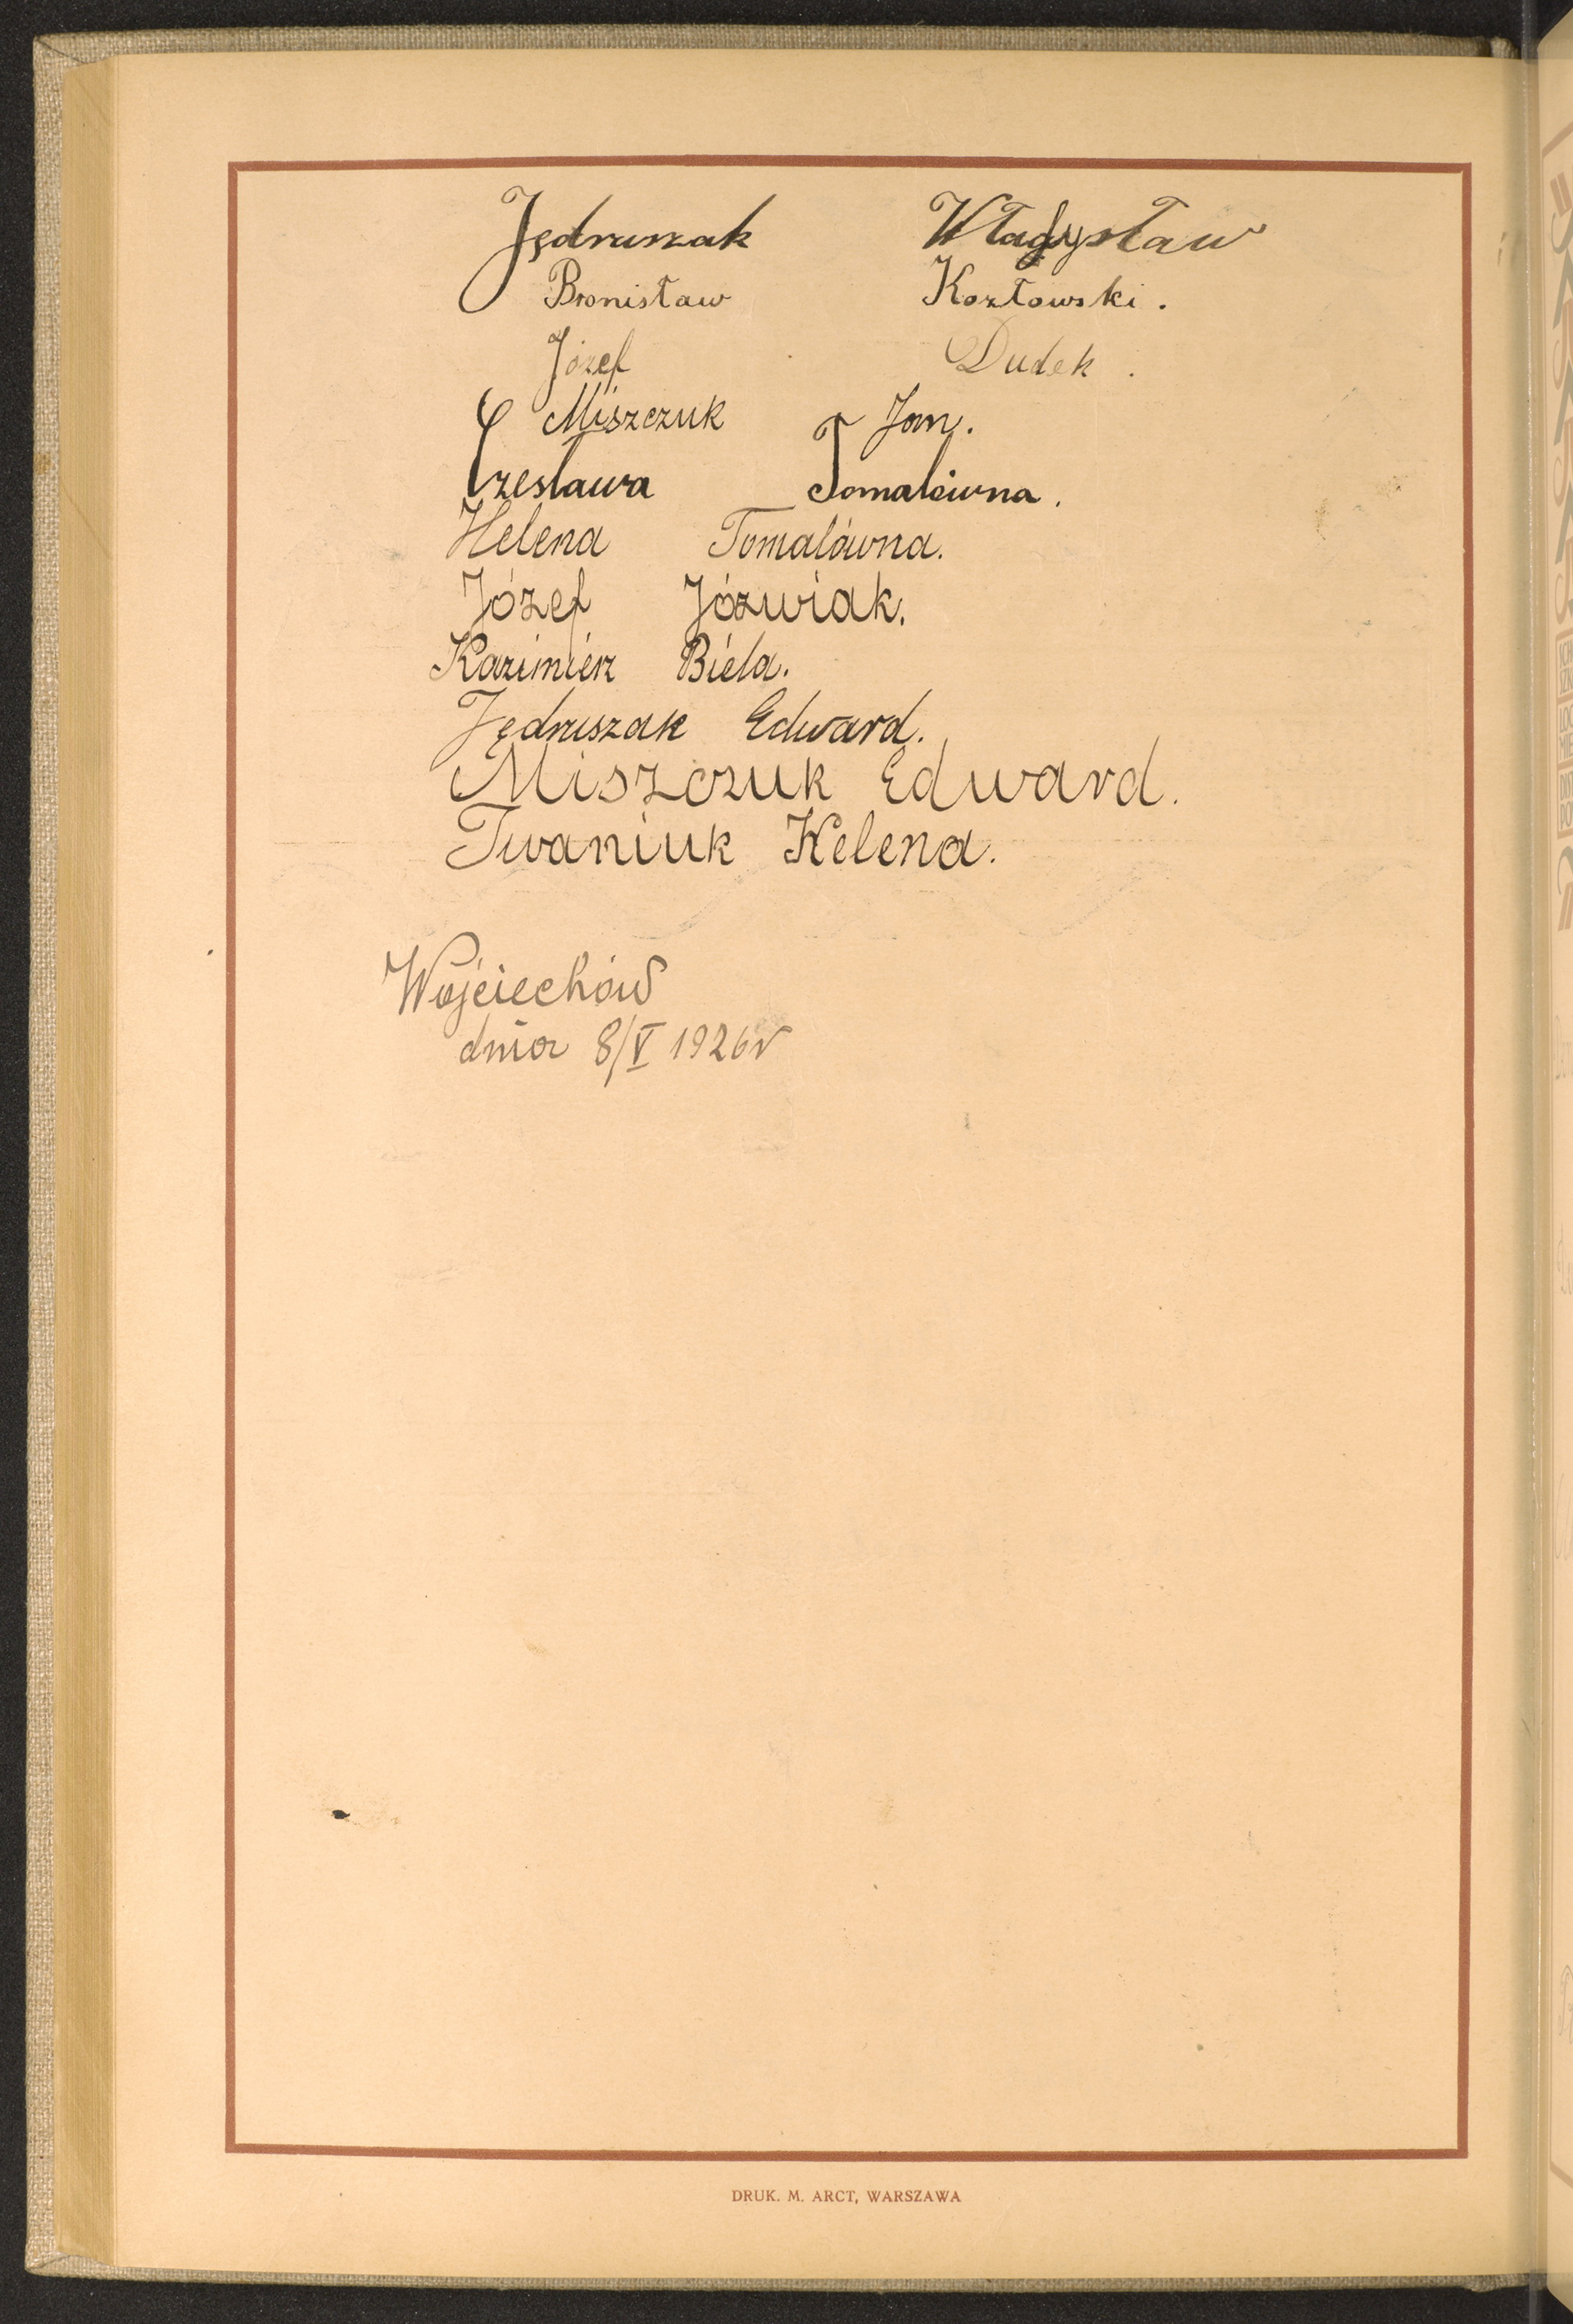 Jędruszak Władysław
Bronisław Kozłowski.
Józef Dudek.
Miszczuk Jan.
Czesława Tomalówna.
Helena Tomalówna.
Józef Józwiak.
Kazimierz Biela.
Jędruszak Edward.
Miszczuk Edward.
Iwaniuk Helena.
Wojciechów
dnia 8/V 1926r
DRUK. M. ARCT, WARSZAWA